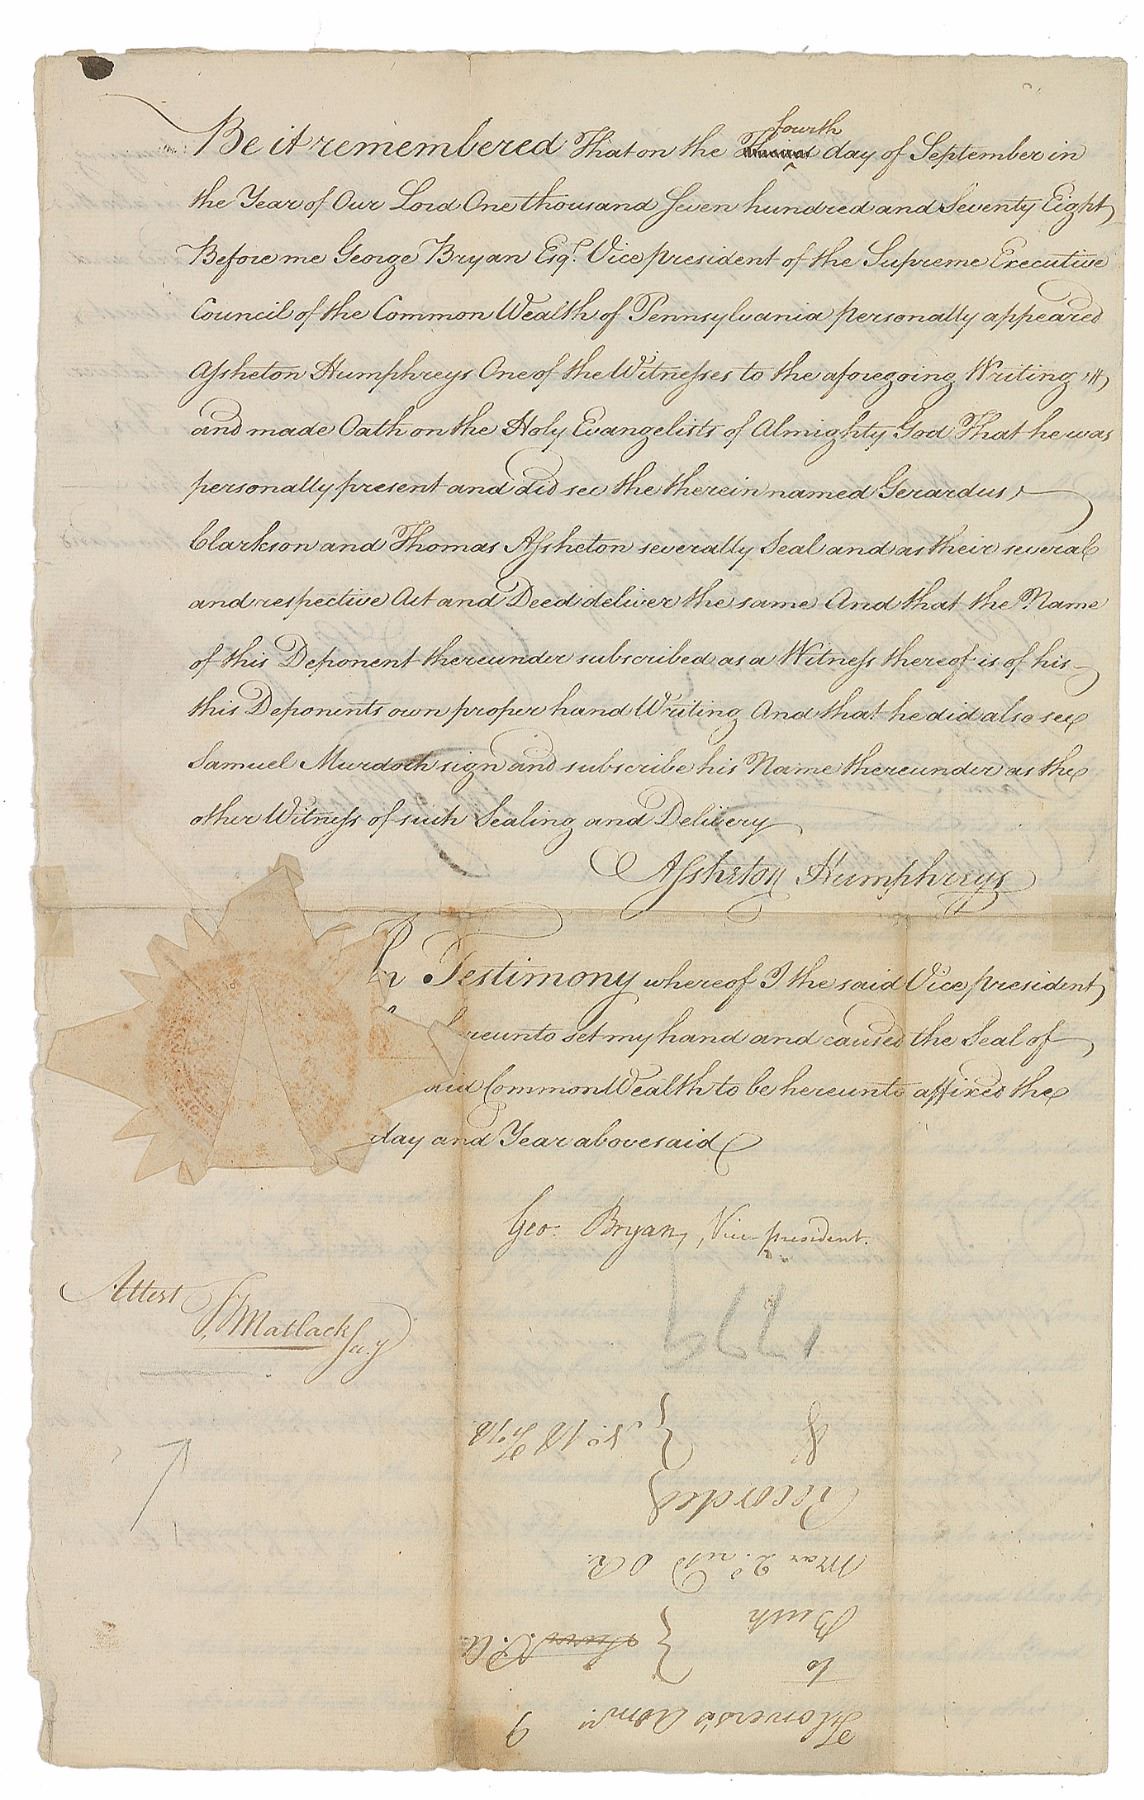 fourth
Be it remembered That on the Third day of September in
the Year of Our Lord One thousand Seven hundred and Seventy Eight
Before me George Bryan Esqr. Vice president of the Supreme Executive
Council of the Common Wealth of Pennsylvania personally appeared
Assheton Humphreys One of the Witnesses to the aforegoing Writing
and made Oath on the Holy Evangelists of Almighty God That he was
personally present and did see the therein named Gerardus
Clarkson and Thomas Assheton severally Seal and as their several
and respective Act and Deed deliver the same And that the Name
of this Deponent thereunder subscribed as a Witness thereof is of his
this Deponents own proper hand Writing And that he did also see
Samuel Murdoch sign and subscribe his Name thereunder as the
other Witness of such Sealing and Delivery
Assheton Humphreys
In Testimony whereof I the said Vice president
hereunto set my hand and caused the Seal of
said Common Wealth to be hereunto affixed the
day and Year abovesaid
Geo: Bryan, Vice president.
Attest
T Matlack Secy
1779
Flowers's Admr. 9
to
Bush
Mar
Recorded
No. 18